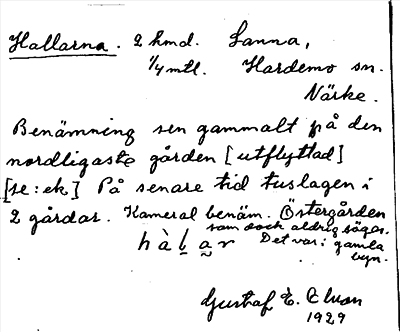 Hallarna. 2 hmd. Sanna,
1/4 mtl. Hardemo sn.
Närke.
Benämning sen gammalt på den
nordligaste gården [utflyttad]
[se: ek] På senare tid tuslagen i
2 gårdar. Kameral benäm. Östergården
som dock aldrig säges.
hàlar Det var i gamla
byn.
Gustaf E.
1929